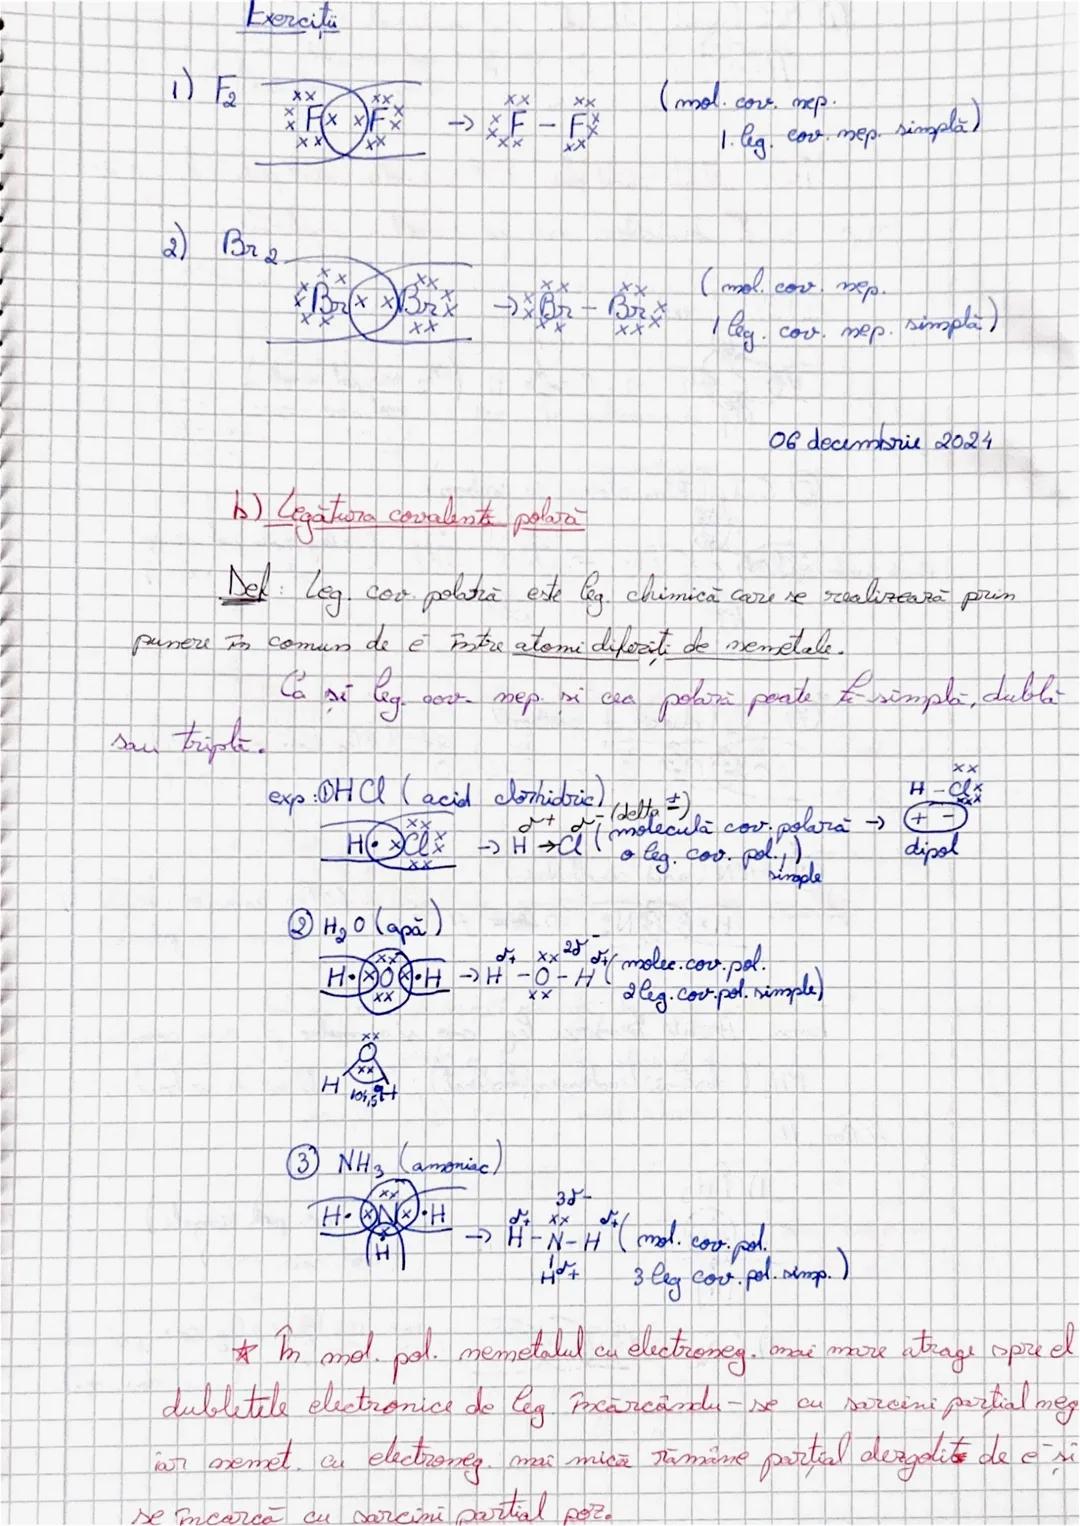 Exerciții
1) F2 xx xx x F x x F x xx xx → xx xx x F – F x xx xx (mol. cov. nep.
1. leg. cov. nep. simplă)
2) Br2 xx xx x Br x x Br x xx xx → xx xx x Br – Br x xx xxx (mol. cov. nep.
1 leg. cov. nep. simplă)
06 decembrie 2024
b) Legătura covalentă polară
Def: Leg. cov. polară este leg. chimică care se realizează prin
punere în comun de e⁻ între atomi diferiți de nemetale.
Ca și leg. cov. nep. și cea polară poate fi simplă, dublă
sau triplă.
exp: ① HCl (acid clorhidric) (delta ±)
H • x Cl x → H δ+ → Cl δ- (moleculă cov. polară → H – Cl (+ –) dipol
o leg. cov. pol., simple)
② H2O (apă)
H • x O x • H → H δ+ – O 2δ- – H δ+ (molec. cov. pol.
2 leg. cov. pol. simple)
xx
O
xx
H 104,5° H
③ NH3 (amoniac)
3δ-
H • x N x • H → H δ+ – N – H δ+ (mol. cov. pol.
H H δ+ 3 leg cov. pol. simp.)
* În mol. pol. nemetalul cu electroneg. mai mare atrage spre el
dubletele electronice de leg. încărcându-se cu sarcini parțial neg
iar nemet. cu electroneg. mai mică rămâne parțial dezgolit de e⁻ și
se încarcă cu sarcini parțial poz.